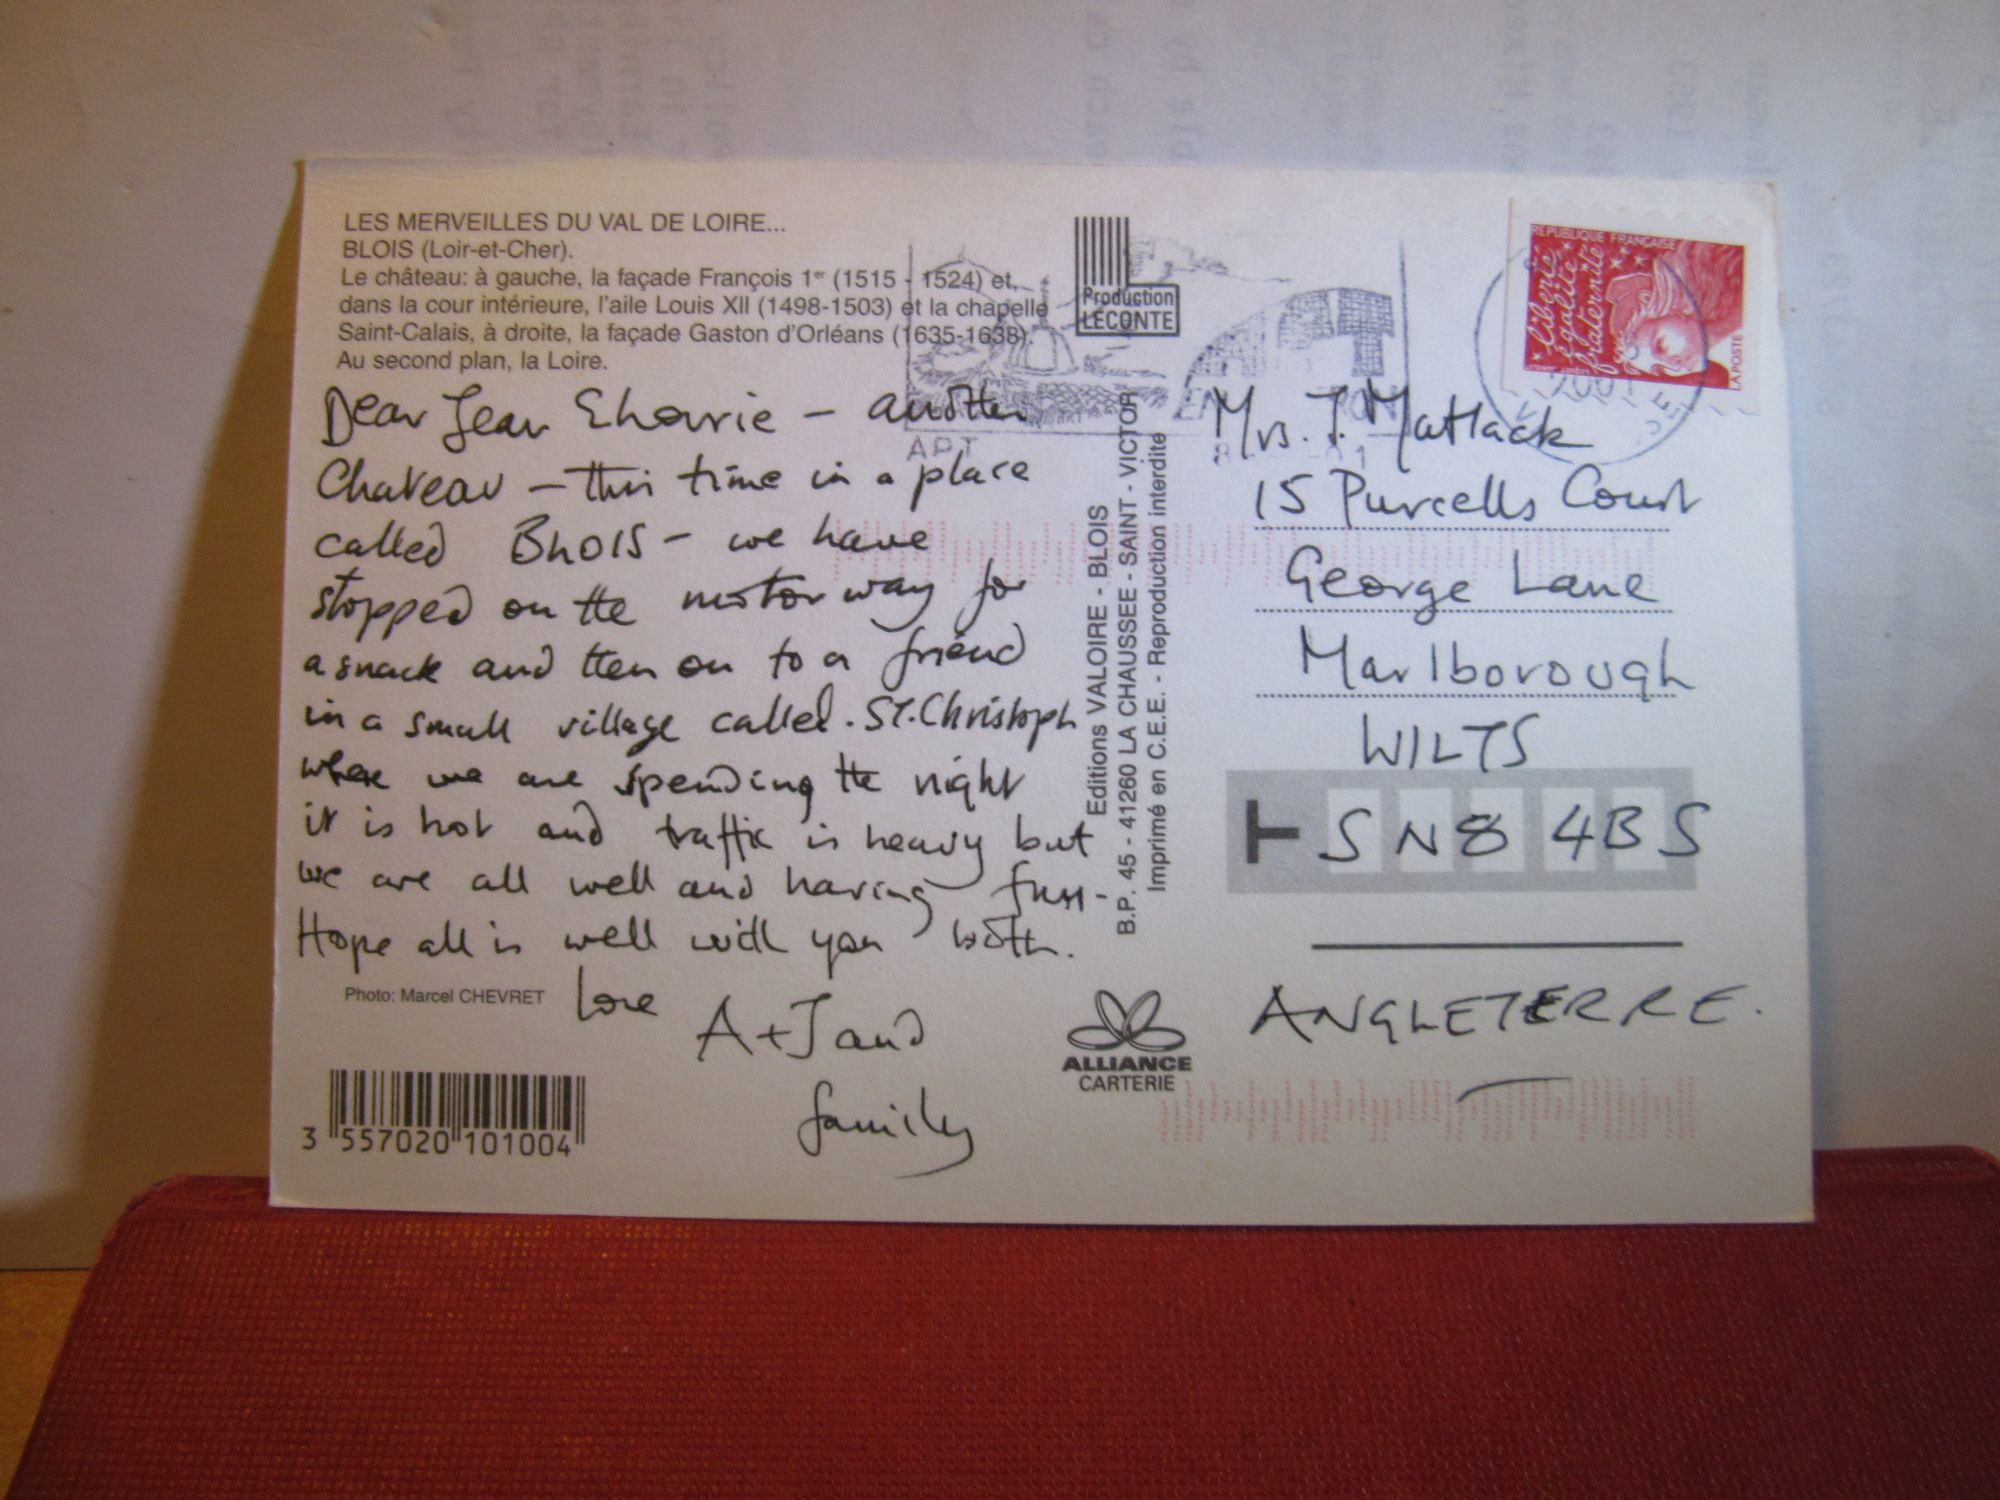 LES MERVEILLES DU VAL DE LOIRE...
BLOIS (Loir-et-Cher).
Le château: à gauche, la façade François 1er (1515 - 1524) et,
dans la cour intérieure, l'aile Louis XII (1498-1503) et la chapelle
Saint-Calais, à droite, la façade Gaston d'Orléans (1635-1638).
Au second plan, la Loire.
Dear Jean – another
Chateau – this time in a place
called BLOIS – we have
stopped on the motorway for
a snack and then on to a friend
in a small village called. ST. Christoph
where we are spending the night
it is hot and traffic is heavy but
we are all well and having fun -
Hope all is well with you both.
Love
A + J and
family
Photo: Marcel CHEVRET
3 557020 101004
Production
LECONTE
APT
Editions VALOIRE - BLOIS
B.P. 45 - 41260 LA CHAUSSEE - SAINT - VICTOR
Imprimé en C.E.E. - Reproduction interdite
ALLIANCE
CARTERIE
REPUBLIQUE FRANÇAISE
liberté
égalité
fraternité
LA POSTE
2001
Mrs. J. Matlack
15 Purcells Court
George Lane
Marlborough
WILTS
SN8 4BS
ANGLETERRE.